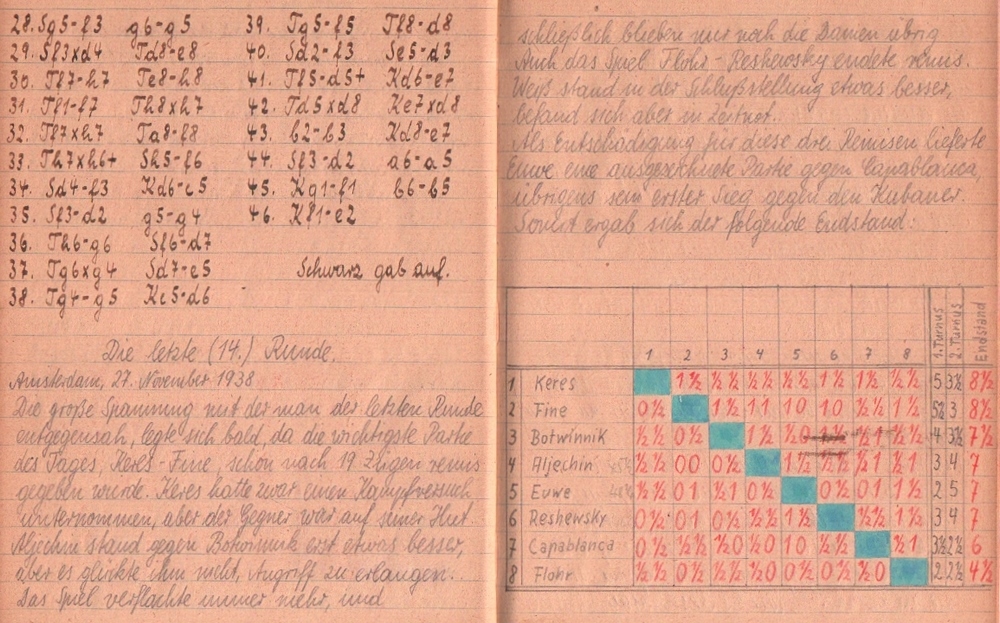 28. Sg5-f3 g6-g5 39. Tg5-f5 Tf8-d8
29. Sf3xd4 Td8-e8 40. Sd2-f3 Se5-d3
30. Tf7-h7 Te8-h8 41. Tf5-d5+ Kd6-e7
31. Tf1-f7 Th8xh7 42. Td5xd8 Ke7xd8
32. Tf7xh7 Ta8-f8 43. b2-b3 Kd8-e7
33. Th7xh6+ Sh5-f6 44. Sf3-d2 a6-a5
34. Sd4-f3 Kd6-c5 45. Kg1-f1 b6-b5
35. Sf3-d2 g5-g4 46. Kf1-e2
36. Th6-g6 Sf6-d7
37. Tg6xg4 Sd7-e5 Schwarz gab auf.
38. Tg4-g5 Kc5-d6
Die letzte (14.) Runde.
Amsterdam, 27. November 1938
Die große Spannung mit der man der letzten Runde
entgegensah, legte sich bald, da die wichtigste Partie
des Tages, Keres-Fine, schon nach 19 Zügen remis
gegeben wurde. Keres hatte zwar einen Kampfversuch
unternommen, aber der Gegner war auf seiner Hut.
Aljechin stand gegen Botwinnik erst etwas besser,
aber es glückte ihm nicht, Angriff zu erlangen.
Das Spiel verflachte immer mehr, und
schließlich blieben nur noch die Damen übrig
Auch das Spiel Flohr-Reshewsky endete remis.
Weiß stand in der Schlußstellung etwas besser,
befand sich aber in Zeitnot.
Als Entschädigung für diese drei Remisen lieferte
Euwe eine ausgezeichnete Partie gegen Capablanca,
übrigens sein erster Sieg gegen den Kubaner.
Somit ergab sich der folgende Endstand:
1 2 3 4 5 6 7 8 1. Turnus 2. Turnus Endstand
1 Keres 1½ ½½ ½½ ½½ 1½ 1½ ½½ 5 3½ 8½
2 Fine 0½ 1½ 11 10 10 ½½ 1½ 5½ 3 8½
3 Botwinnik ½½ 0½ 1½ ½0 1½ ½1 ½½ 4 3½ 7½
4 Aljechin ½½ 00 0½ 1½ ½½ ½1 ½1 3 4 7
5 Euwe ½½ 01 ½1 0½ 0½ 01 1½ 2 5 7
6 Reshewsky 0½ 01 0½ ½½ 1½ ½½ 1½ 3 4 7
7 Capablanca 0½ ½½ ½0 ½0 10 ½½ ½1 3½ 2½ 6
8 Flohr ½½ 0½ ½½ ½0 0½ 0½ ½0 2 2½ 4½